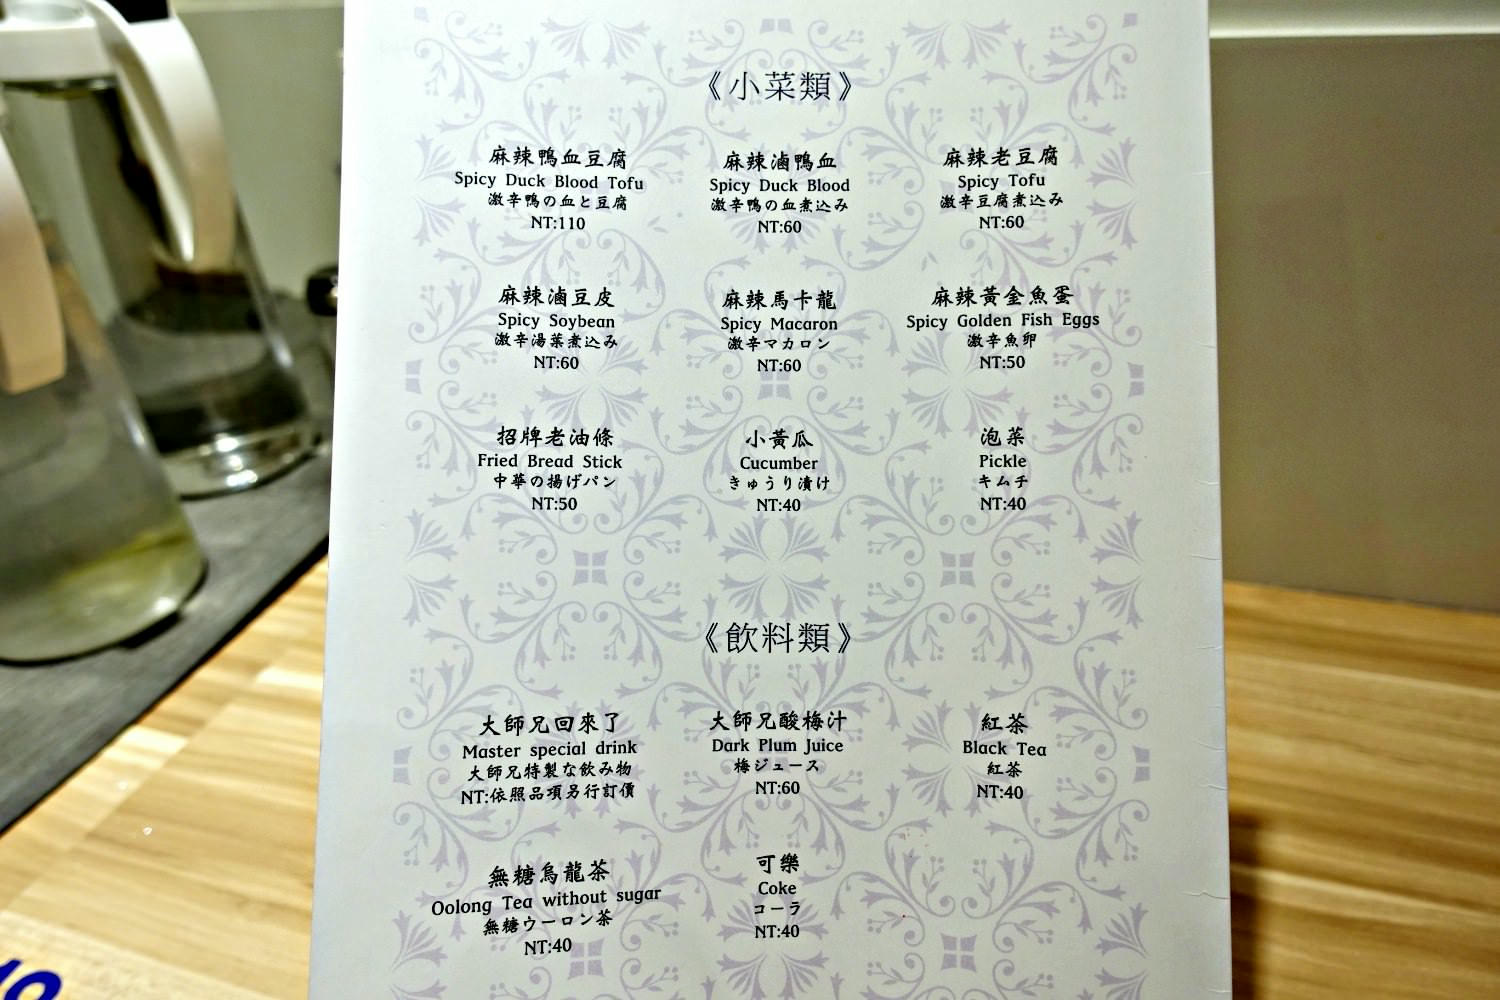 《小菜類》
麻辣鴨血豆腐
Spicy Duck Blood Tofu
激辛鴨の血と豆腐
NT:110
麻辣滷鴨血
Spicy Duck Blood
激辛鴨の血煮込み
NT:60
麻辣老豆腐
Spicy Tofu
激辛豆腐煮込み
NT:60
麻辣滷豆皮
Spicy Soybean
激辛湯葉煮込み
NT:60
麻辣馬卡龍
Spicy Macaron
激辛マカロン
NT:60
麻辣黃金魚蛋
Spicy Golden Fish Eggs
激辛魚卵
NT:50
招牌老油條
Fried Bread Stick
中華の揚げパン
NT:50
小黃瓜
Cucumber
きゅうり漬け
NT:40
泡菜
Pickle
キムチ
NT:40
《飲料類》
大師兄回來了
Master special drink
大師兄特製な飲み物
NT:依照品項另行訂價
大師兄酸梅汁
Dark Plum Juice
梅ジュース
NT:60
紅茶
Black Tea
紅茶
NT:40
無糖烏龍茶
Oolong Tea without sugar
無糖ウーロン茶
NT:40
可樂
Coke
コーラ
NT:40